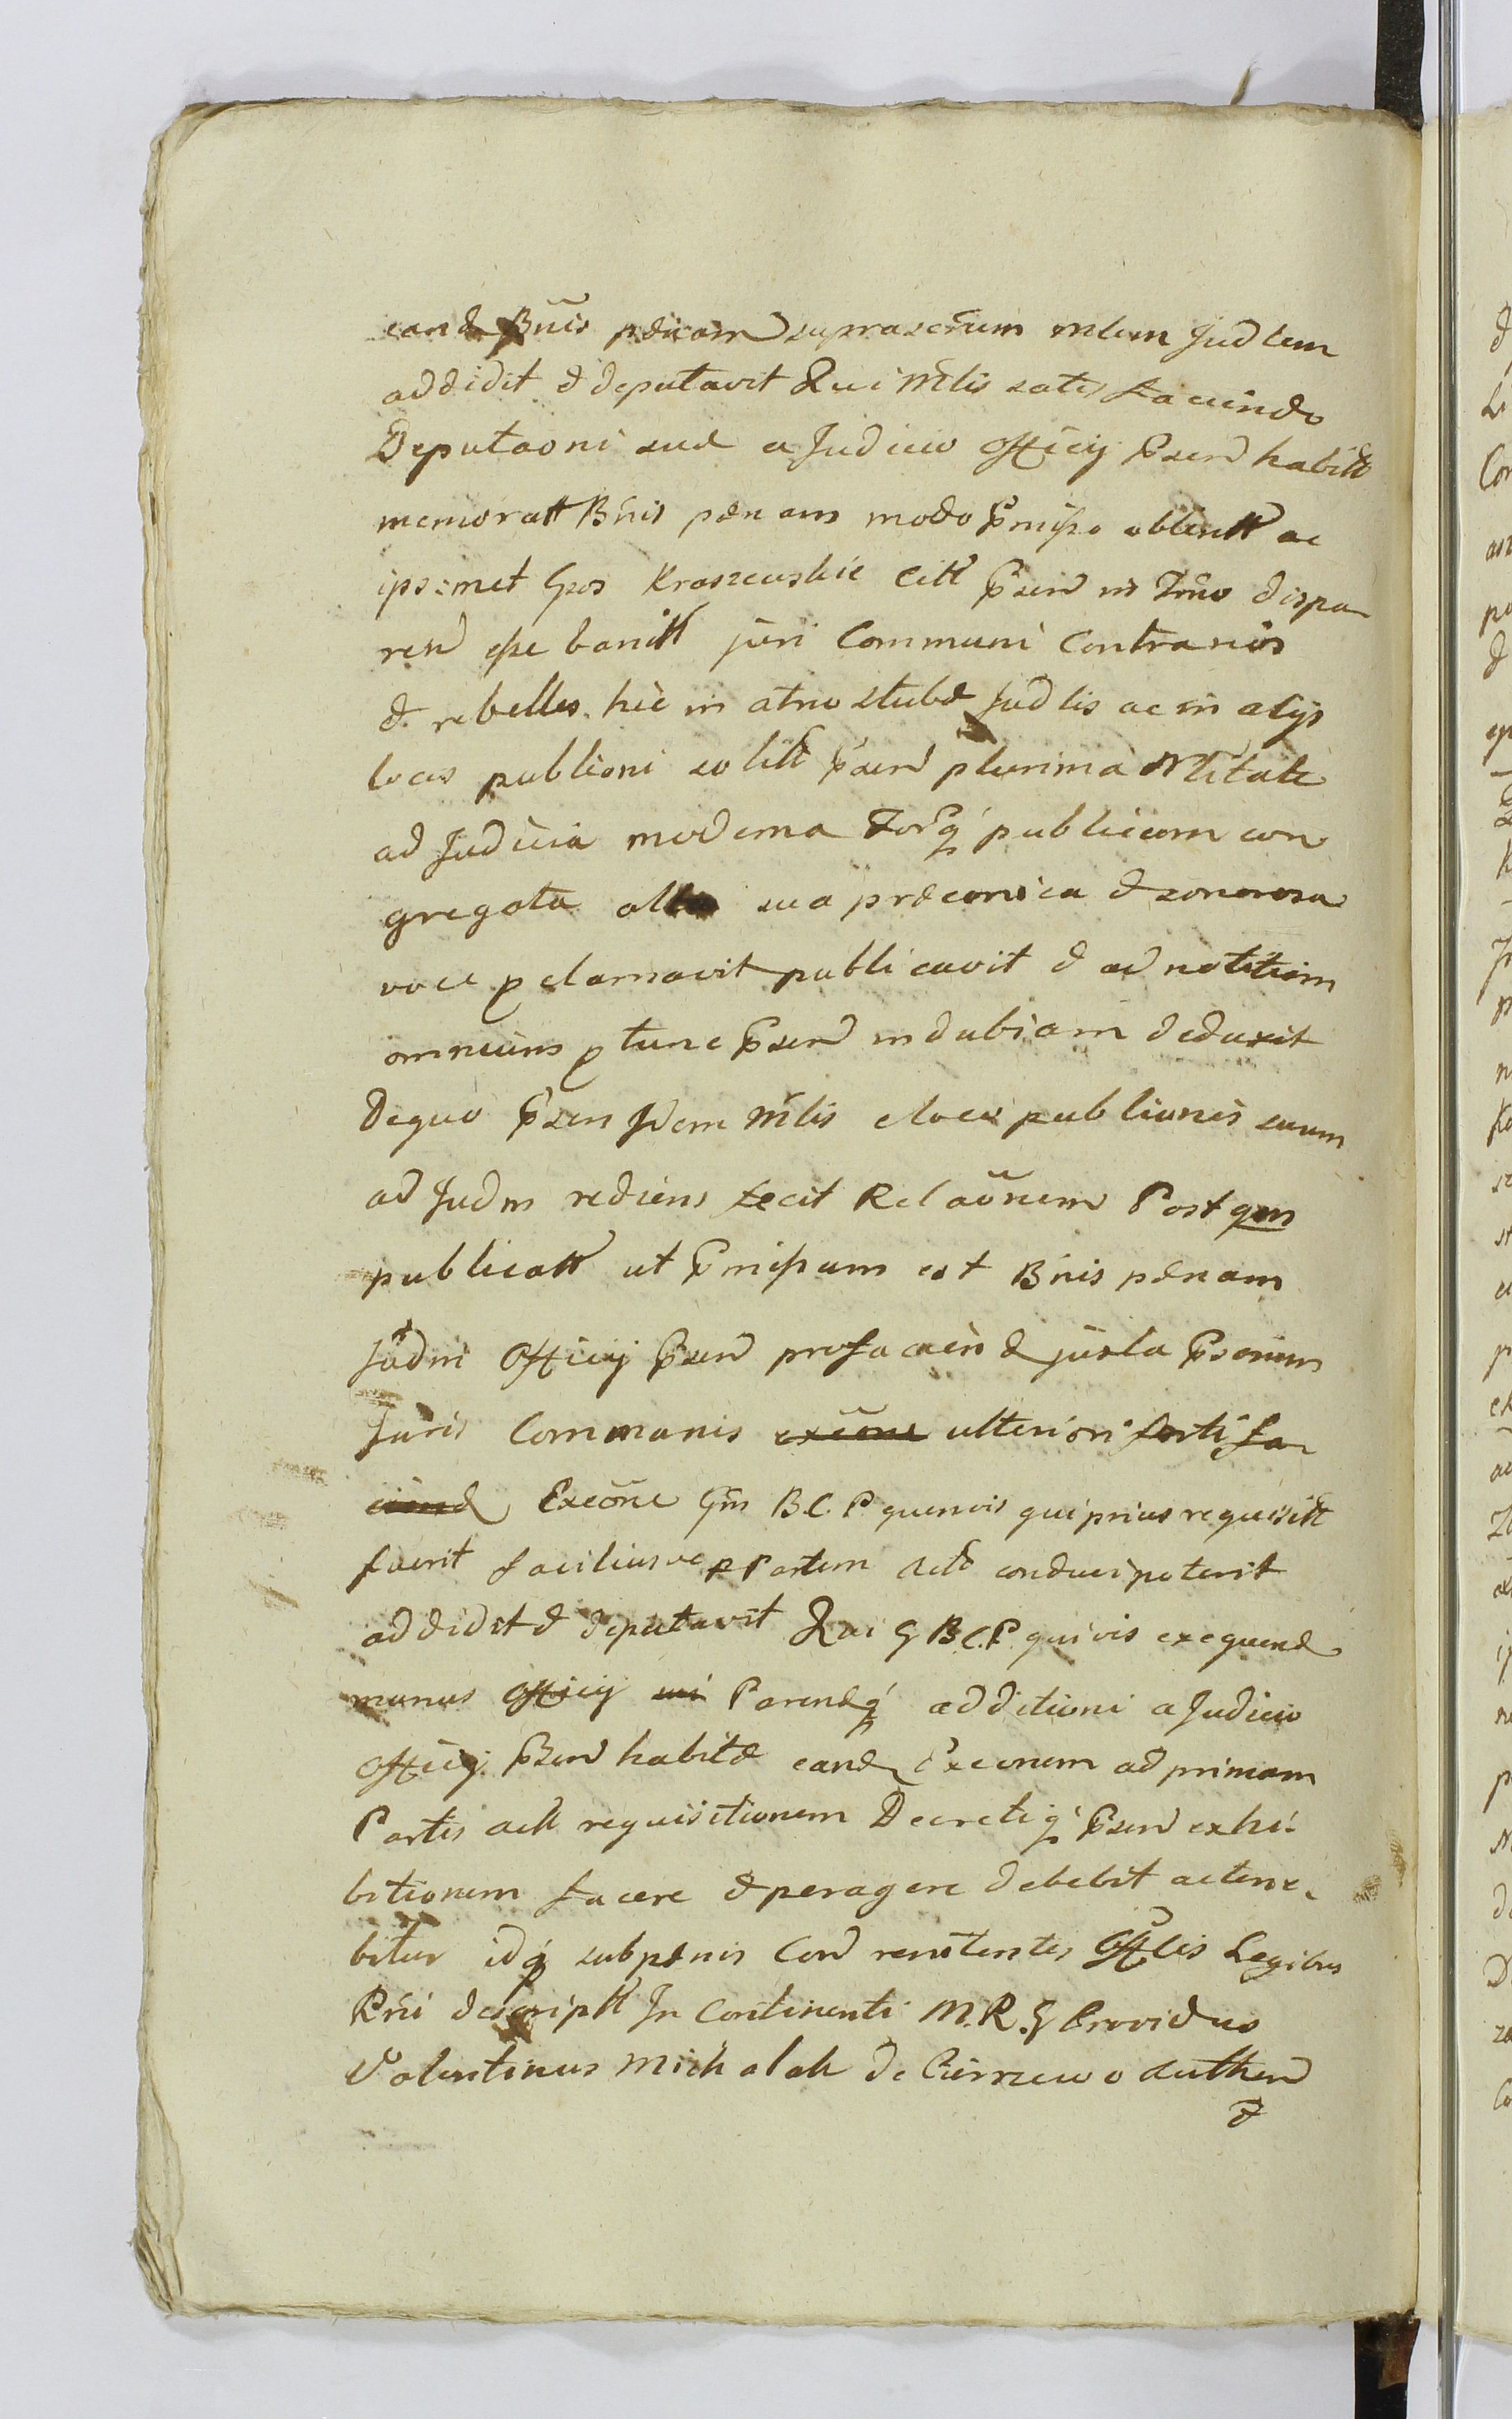 eand Bnis pænam suprascrum mlem Judlem
addidit & deputavit Qui Mlis satis faciendo
Deputaoni suæ a Judicio Officij Psen habitæ
memoratt Bnis pænam modo Pmisso obtentt ac
ipsos met Gsos Kraszewskie Citt Psen in Tmno dispa
ren esse banitt juri Communi Contrarios
& rebelles hic in atrio stubæ Judlis ac in alijs
locis publioni solitt Psen plurima Nlitate
ad Judicia moderna Forq publicum con
gregata alta sua præconica & sonorosa
voce pclamavit publicavit & ad notitiam
omnium ptunc Psen indubiam deduxit
Dequo Psen Idem Mlis eloco publionis suum
ad Judm rediens fecit Relaonem Post qm
publicatt ut Pmissum est Bnis pænam
Judm Officij Psen pro faciend juxta Psenem
Juris Communis exeone ulteriori forti fa
ciend Exeone Gm B.C.P. quemvis qui prius requisitt
fuerit faciliusve p Partem Actt conduci poterit
addidit & deputavit Qui G B.C.P. quivis exequend
munus Officij sui Parendq additioni a Judicio
Officij Psen habitæ eand Exeonem ad primam
Partis actt requisitionem Decretiq Psen exhi-
bitionem facere & peragere debebit ac tene-
bitur idq sub pænis Con renitentes Offtles Legibus
Rni descriptt In Continenti M.R. G Providus
Valentinus Michalak de Cierzewo Authen
&